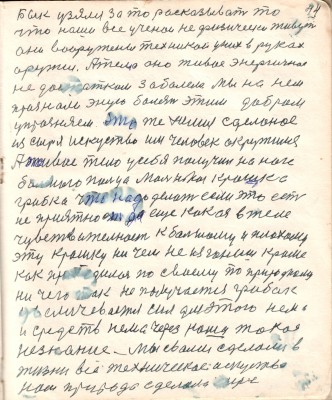 что наши все ученые не физически живут
они вооружены техникой у них в руках
оружия. А тело оно живое энергичное
не достатком заболело мы на нем
признали эную болят этим добром
управляем это же химия сделаное
из сырья искуство им человек окружился
А живое тело у себя получил на ноге
большого пальца маленькая крошка
грибка что надо делать если это есть
не приятность да еще какая в теле
чувствителност к большому и плохому
эту крошку ни чем не изгониш кроме
как приходился по своему то природному
ни чего так не получается грибок
увеличевается сил для этого нема
и средств нема через наше такое
незнание _ Мы сваими сделоми в
жизни все техническое искуство
нам природа сделала